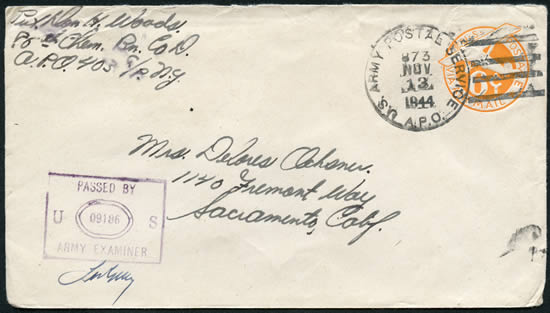 Pvt. Don H. Woods.
86th Chem. Bn. Co D.
A.P.O. 403 c/o P.M. N.Y.
U.S. ARMY POSTAL SERVICE
873
NOV
13
1944
A.P.O.
U.S. POSTAGE
6¢
VIA AIR MAIL
Mrs. Delores Ochsner.
1140 Fremont Way
Sacramento, Calif.
PASSED BY
U 09186 S
ARMY EXAMINER